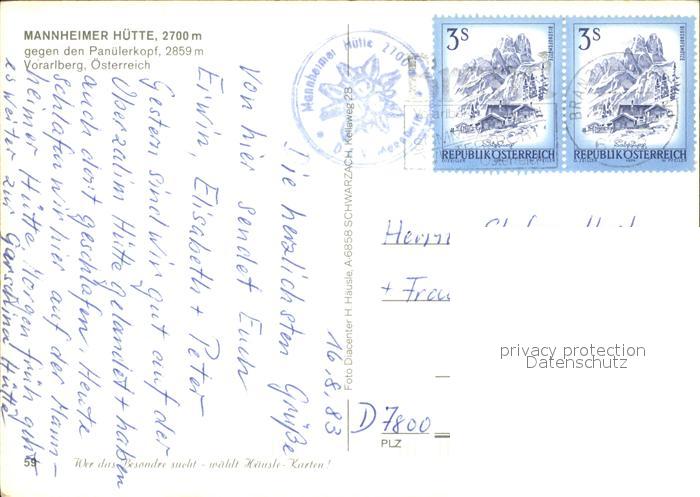 MANNHEIMER HÜTTE, 2700 m
gegen den Panülerkopf, 2859 m
Vorarlberg, Österreich
16.8.83
Die herzlichsten Grüße
von hier sendet Euch
Erwin, Elisabeth + Peter
Gestern sind wir gut auf der
Oberzalim Hütte gelandet + haben
auch dort geschlafen. Heute
schlafen wir hier auf der Mann-
heimer Hütte. Morgen früh geht
es weiter zur Garschina Hütte
59
Wer das Besondre sucht - wählt Häusle-Karten!
Foto Diacenter H. Häusle, A-6858 SCHWARZACH, Kelleweg 28
Mannheimer Hütte 2700
3S
REPUBLIK ÖSTERREICH
3S
REPUBLIK ÖSTERREICH
Herrn
+ Frau
privacy protection
Datenschutz
D 7800
PLZ